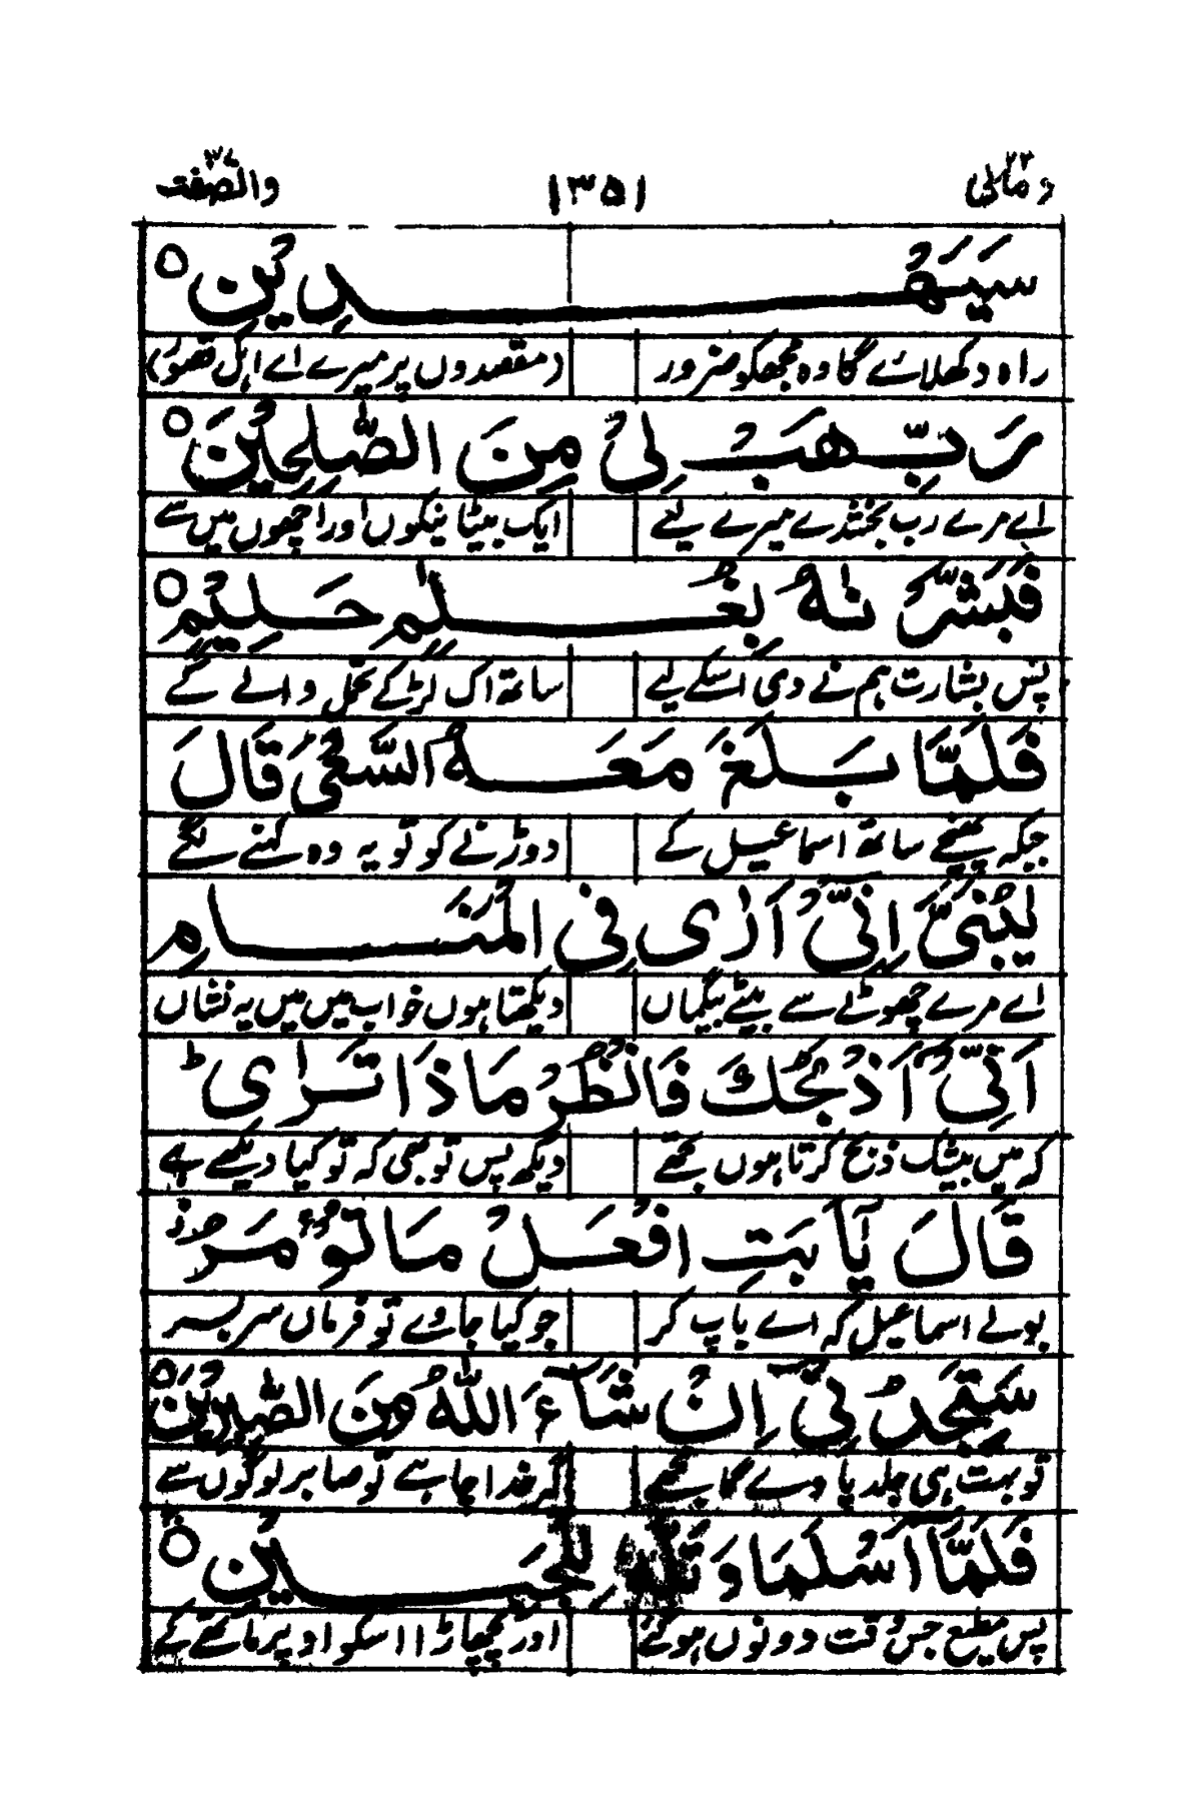 ومالی ٢٣ ١٣٥١ والصّٰفّٰت ٣٧
سَیَهْدِیْنِ ○
راہ دکھلائے گا وہ مجھکو ضرور (مقصدوں پر میرے اے اہل
رَبِّ هَبْ لِیْ مِنَ الصّٰلِحِیْنَ ○
اے مرے رب بخشدے میرے لئے ایک بیٹا نیکوں اور اچھوں میں سے
فَبَشَّرْنٰهُ بِغُلٰمٍ حَلِیْمٍ ○
پس بشارت ہم نے دی اسکے لیے ساتھ اک لڑکے تحمل والے کے
فَلَمَّا بَلَغَ مَعَهُ السَّعْیَ قَالَ
جبکہ پہنچے ساتھ اسماعیل کے دوڑنے کو تو یہ وہ کہنے لگے
یٰبُنَیَّ اِنِّیْۤ اَرٰی فِی الْمَنَامِ
اے مرے چھوٹے سے بیٹے بیگماں دیکھتا ہوں خواب میں میں یہ نشاں
اَنِّیْۤ اَذْبَحُكَ فَانْظُرْ مَاذَا تَرٰی ؕ
کہ میں بیشک ذبح کرتا ہوں تجھے دیکھ پس تو بھی کہ تو کیا دیکھے ہے
قَالَ یٰۤاَبَتِ افْعَلْ مَا تُؤْمَرُ ز
بولے اسماعیل کہ اے باپ کر جو کیا جاوے تو فرماں سر بسر
سَتَجِدُنِیْۤ اِنْ شَآءَ اللّٰهُ مِنَ الصّٰبِرِیْنَ ○
تو بہت ہی جلد پا وے گا مجھے گر خدا چاہے تو صابر لوگوں سے
فَلَمَّاۤ اَسْلَمَا وَ تَلَّهٗ لِلْجَبِیْنِ ○
پس مطیع جس وقت دونوں ہو گئے اور پچھاڑا اسکو اوپر ماتھے کے